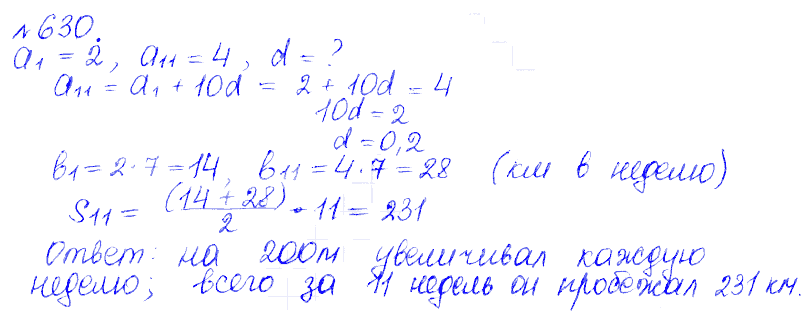 №630.
a₁ = 2, a₁₁ = 4, d = ?
a₁₁ = a₁ + 10d = 2 + 10d = 4
10d = 2
d = 0,2
в₁ = 2·7 = 14, в₁₁ = 4·7 = 28 (км в неделю)
S₁₁ = (14 + 28)/2 · 11 = 231
Ответ: на 200м увеличивал каждую
неделю; всего за 11 недель он пробежал 231 км.